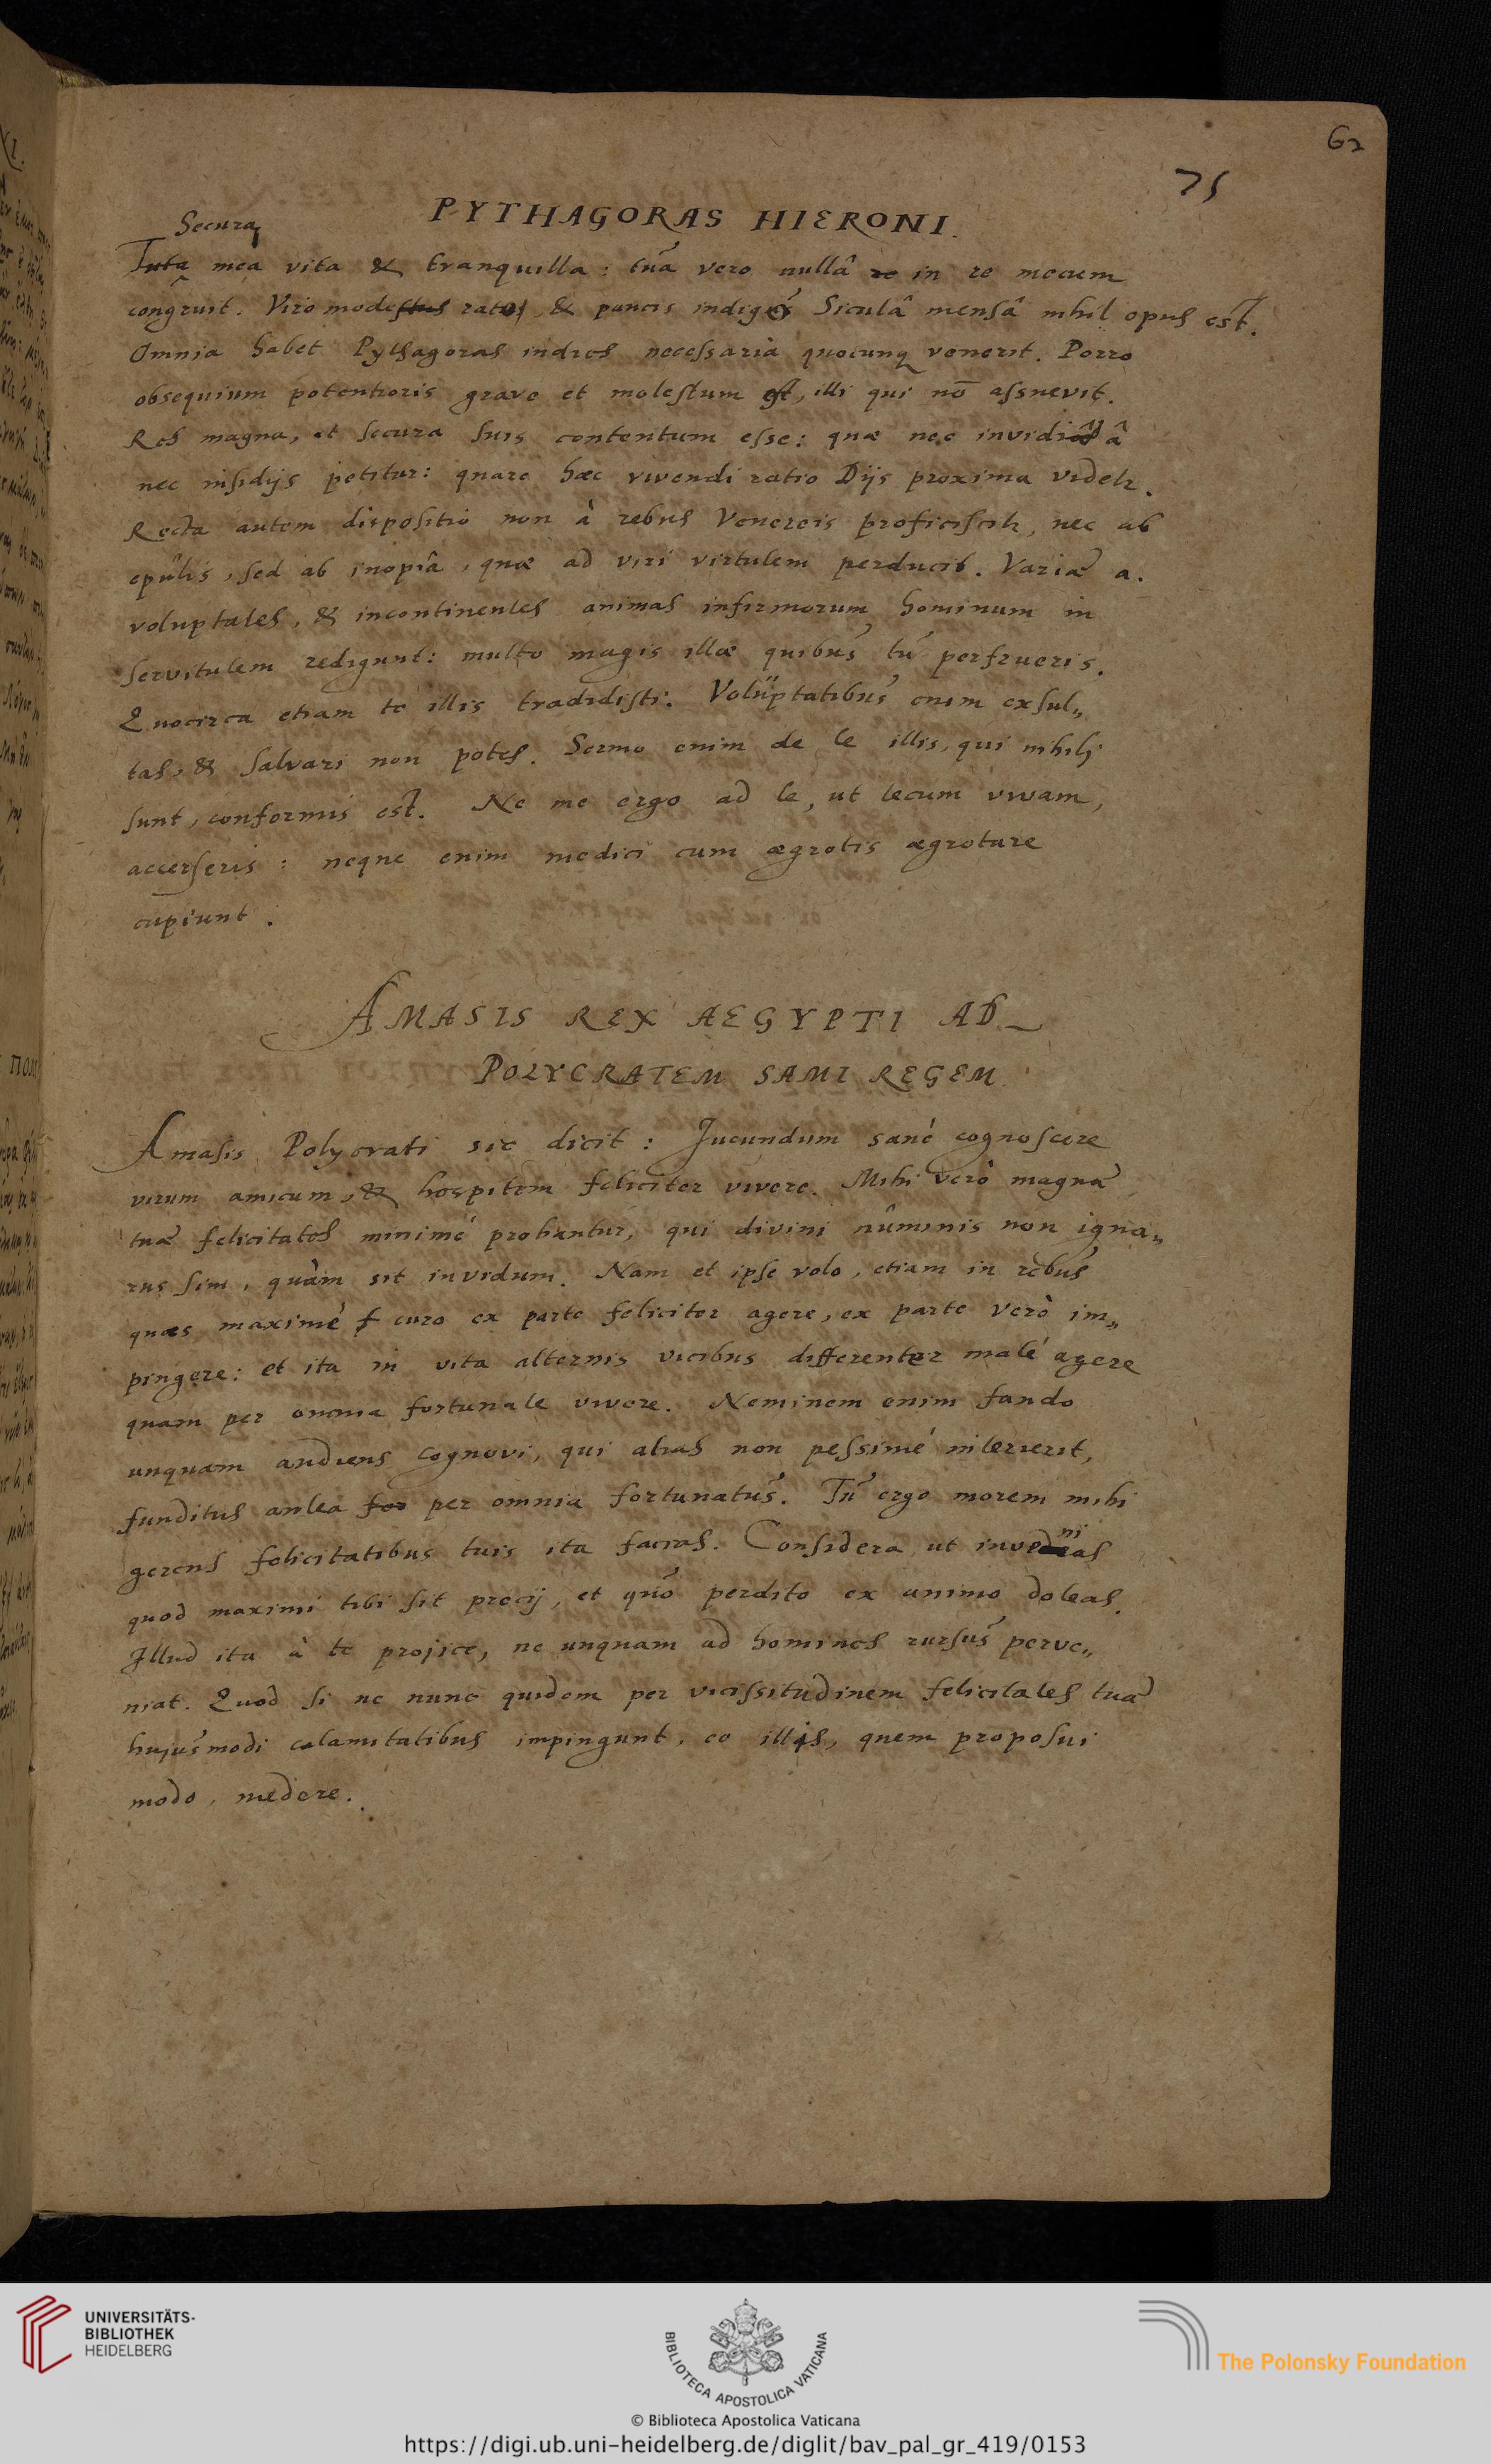 62
75
PYTHAGORAS HIERONI.
Secura
Tuta mea vita & tranquilla: tua vero nullâ re in re mecum
congruit. Viro modestus rato, & paucis indigo Siculâ mensâ nihil opus est.
Omnia habet Pythagoras indies necessaria quocunq venerit. Porro
obsequium potentioris grave et molestum est, illi qui nō assuevit.
Res magna, et secura suis contentum esse: quæ nec invidiâ
nec insidijs petitur: quare hæc vivendi ratio Dijs proxima videtr.
Recta autem dispositio non à rebus Venereis proficiscitr, nec ab
epulis, sed ab inopiâ, quæ ad viri virtutem perducit. Variæ a.
voluptates, & incontinentes animas infirmorum hominum in
servitutem redigunt: multo magis illæ quibus tu perfrueris.
Quocirca etiam te illis tradidisti. Voluptatibus enim exsul„
tas, & salvari non potes. Sermo enim de te illis, qui nihili
sunt, conformis est. Ne me ergo ad te, ut tecum vivam,
accerseris: neque enim medici cum ægrotis ægrotare
cupiunt.
AMASIS REX AEGYPTI AD
POLYCRATEM SAMI REGEM
Amasis Polycrati sic dicit: Jucundum sanè cognoscere
virum amicum, & hospitem feliciter vivere. Mihi verò magnæ
tuæ felicitates minimè probantur, qui divini nûminis non igna„
rus sim, quàm sit invidum. Nam et ipse volo, etiam in rebus
quas maximè f curo ex parte feliciter agere, ex parte verò im„
pingere: et ita in vita alternis vicibus differenter malè agere
quam per omnia fortunate vivere. Neminem enim fando
unquam audiens cognovi, qui alias non pessimè interierit,
funditus antea for per omnia fortunatus. Tu ergo morem mihi
gerens felicitatibus tuis ita facias. Considera, ut invenias
quod maximi tibi sit precij, et quo perdito ex animo doleas.
Illud ita à te projice, ne unquam ad homines rursus perve„
niat. Quod si ne nunc quidem per vicissitudinem felicitates tuæ
hujusmodi calamitatibus impingunt, eo illis, quem proposui
modo, medere.
UNIVERSITÄTS-
BIBLIOTHEK
HEIDELBERG
BIBLIOTECA APOSTOLICA VATICANA
© Biblioteca Apostolica Vaticana
The Polonsky Foundation
https://digi.ub.uni-heidelberg.de/diglit/bav_pal_gr_419/0153